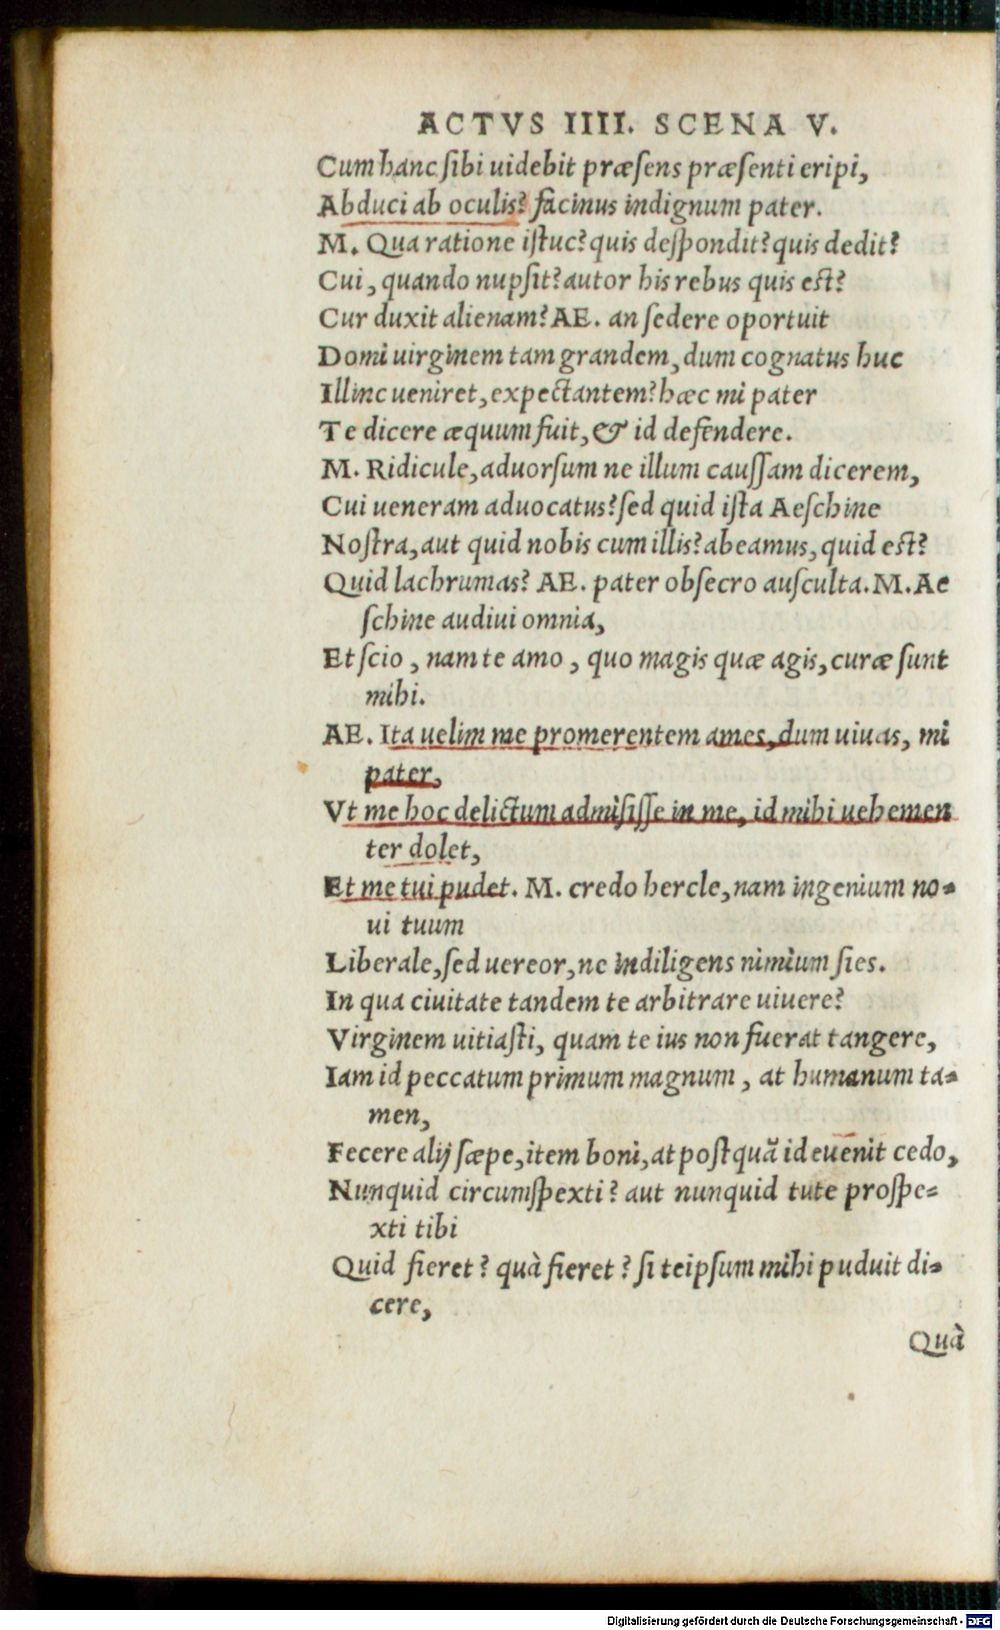 ACTVS IIII. SCENA V.
Cum hanc sibi uidebit præsens præsenti eripi,
Abduci ab oculis? facinus indignum pater.
M. Qua ratione istuc? quis despondit? quis dedit?
Cui, quando nupsit? autor his rebus quis est?
Cur duxit alienam? AE. an sedere oportuit
Domi uirginem tam grandem, dum cognatus huc
Illinc ueniret, expectantem? hæc mi pater
Te dicere æquum fuit, & id defendere.
M. Ridicule, aduorsum ne illum caussam dicerem,
Cui ueneram aduocatus? sed quid ista Aeschine
Nostra, aut quid nobis cum illis? abeamus, quid est?
Quid lachrumas? AE. pater obsecro ausculta. M. Ae
schine audiui omnia,
Et scio, nam te amo, quo magis quæ agis, curæ sunt
mihi.
AE. Ita uelim me promerentem ames, dum uiuas, mi
pater,
Vt me hoc delictum admisisse in me, id mihi uehemen
ter dolet,
Et me tui pudet. M. credo hercle, nam ingenium no-
ui tuum
Liberale, sed uereor, ne indiligens nimium sies.
In qua ciuitate tandem te arbitrare uiuere?
Virginem uitiasti, quam te ius non fuerat tangere,
Iam id peccatum primum magnum, at humanum ta-
men,
Fecere alij sæpe, item boni, at postquã id euenit cedo,
Nunquid circumspexti? aut nunquid tute prospe-
xti tibi
Quid fieret? quà fieret? si teipsum mihi puduit di-
cere,
Quà
Digitalisierung gefördert durch die Deutsche Forschungsgemeinschaft - DFG